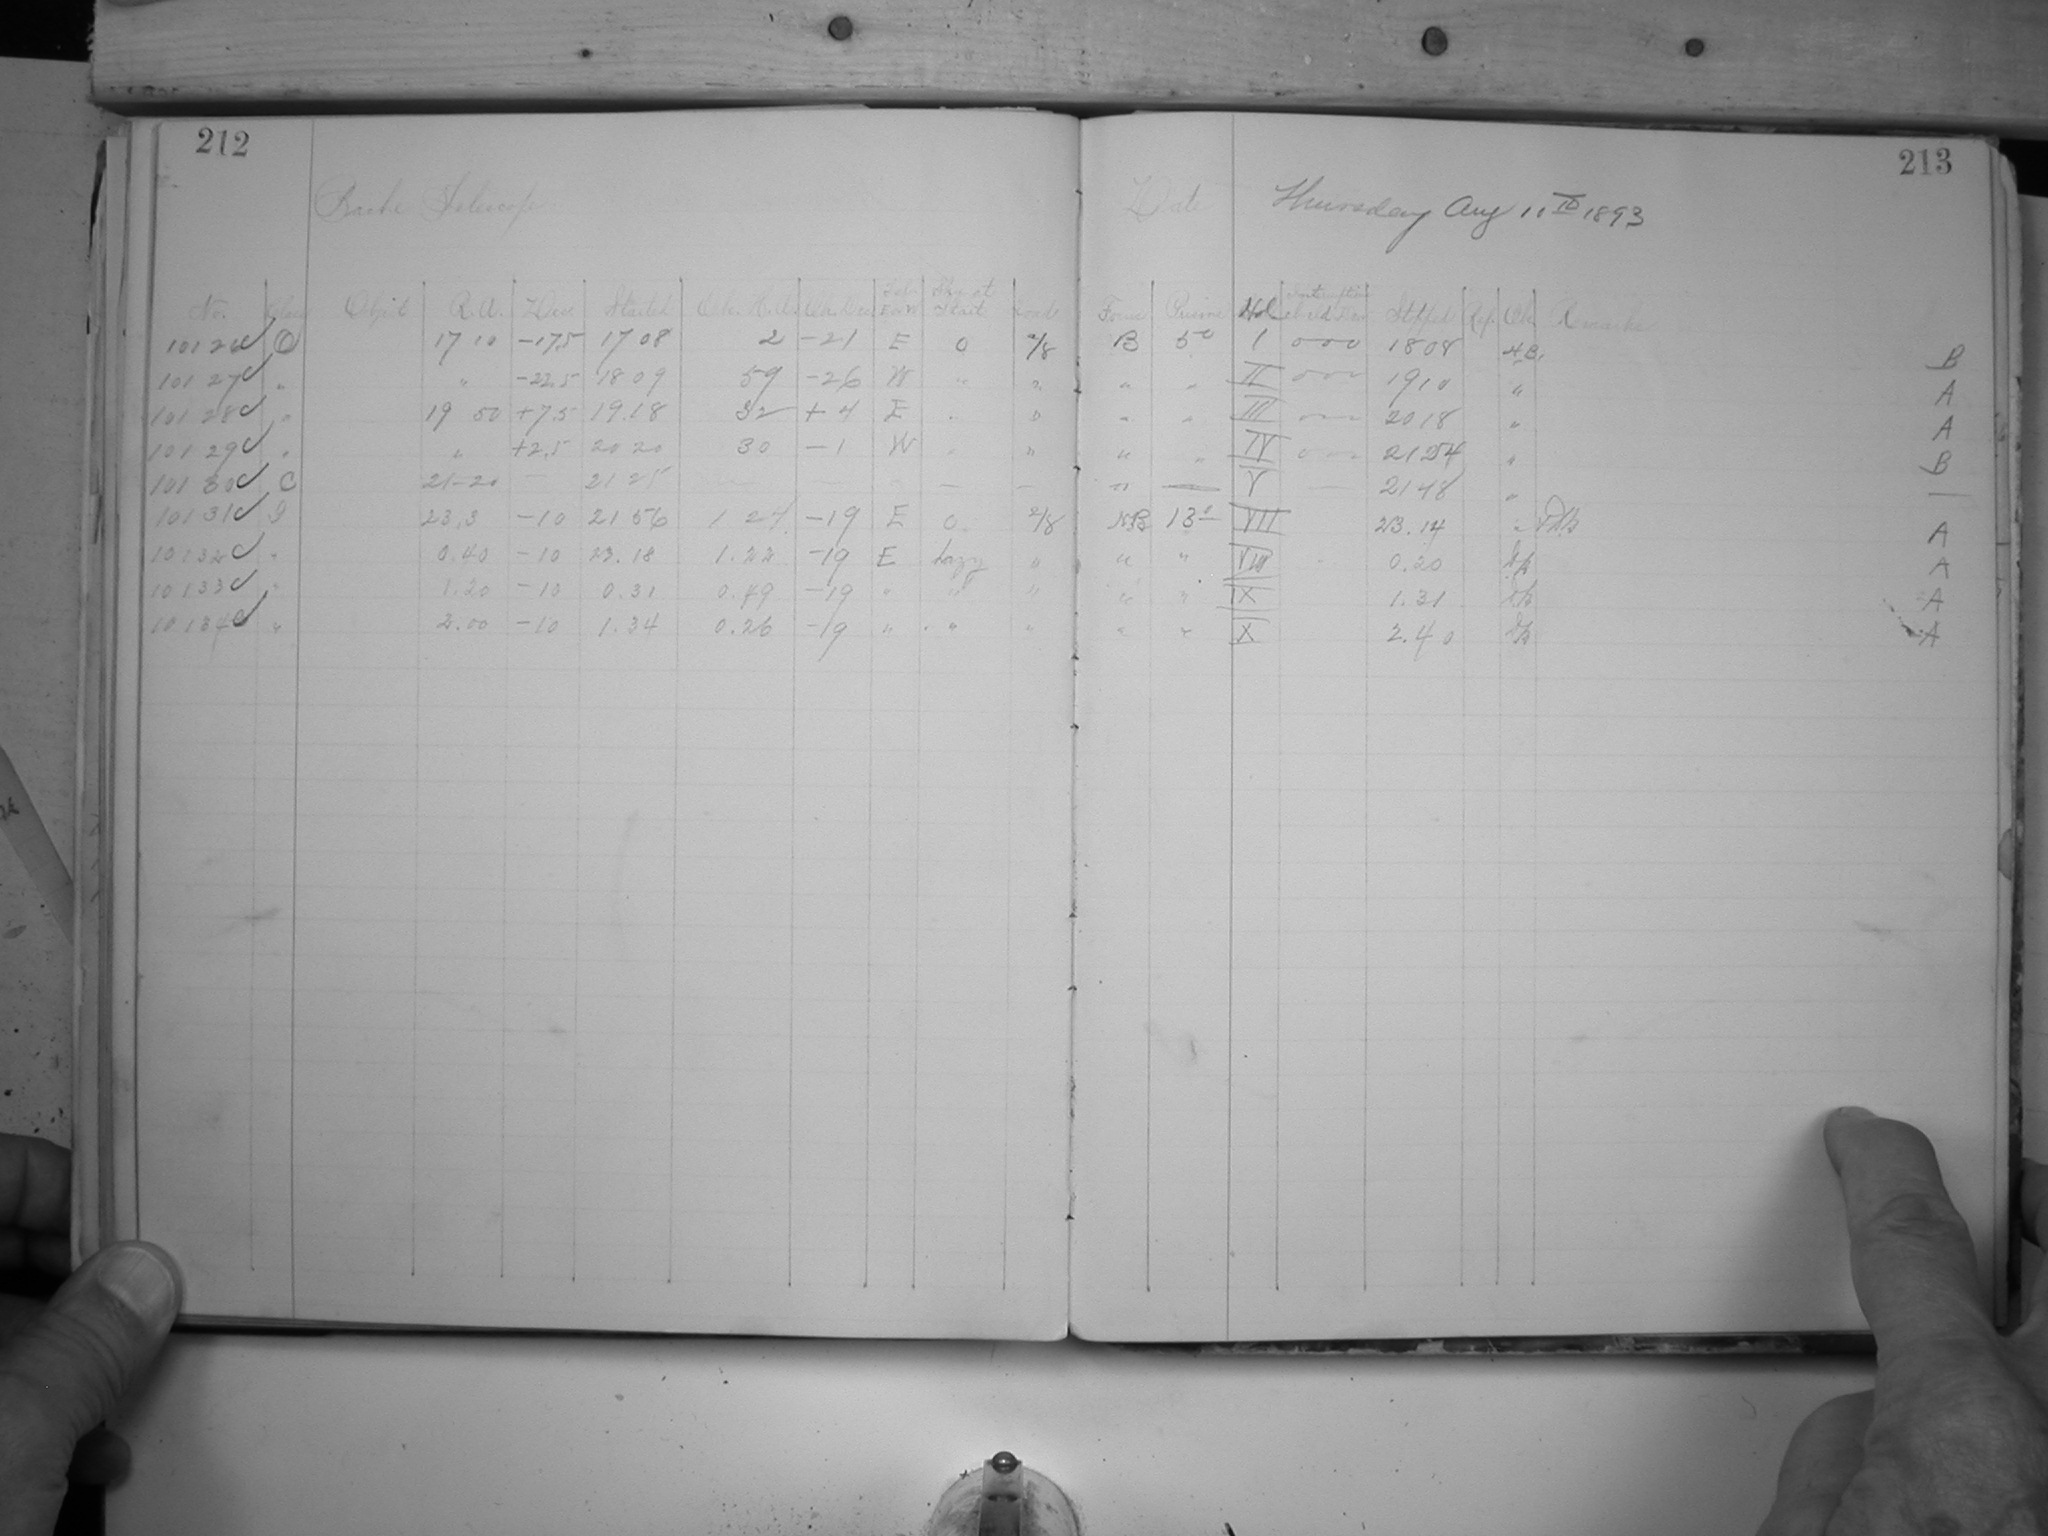 212
213
Bache Telescope
Date Thursday Aug 10th 1893
No. Class Object R.A. Dec. Started Obs. Dec. E or W Sky at Start Focus Prism Hol Interruptions Stopped Obs. Remarks
10126 O 17 10 -17.5 17 08 2 -21 E 0 2/8 B 5° I 000 1808 H.B. B
10127 " " -22.5 18 09 59 -26 W " " " " II 000 1910 " A
10128 " 19 50 +7.5 19.18 32 +4 E " " " " III 2018 " A
10129 " " +2.5 20 20 30 -1 W " " " " IV 2124 " B
10130 C 21-20 — 21 25 — — — — " — V — 2148 " —
10131 23.3 -10 21 56 1 27 -19 E 0 2/8 13° VII 23.14 " A
10132 " 0.40 -10 23.18 1.22 -19 E hazy " " " VIII 0.20 A
10133 " 1.20 -10 0.31 0.49 -19 " " " " " IX 1.31 A
10134 " 2.00 -10 1.34 0.26 -19 " " " " " X 2.40 A